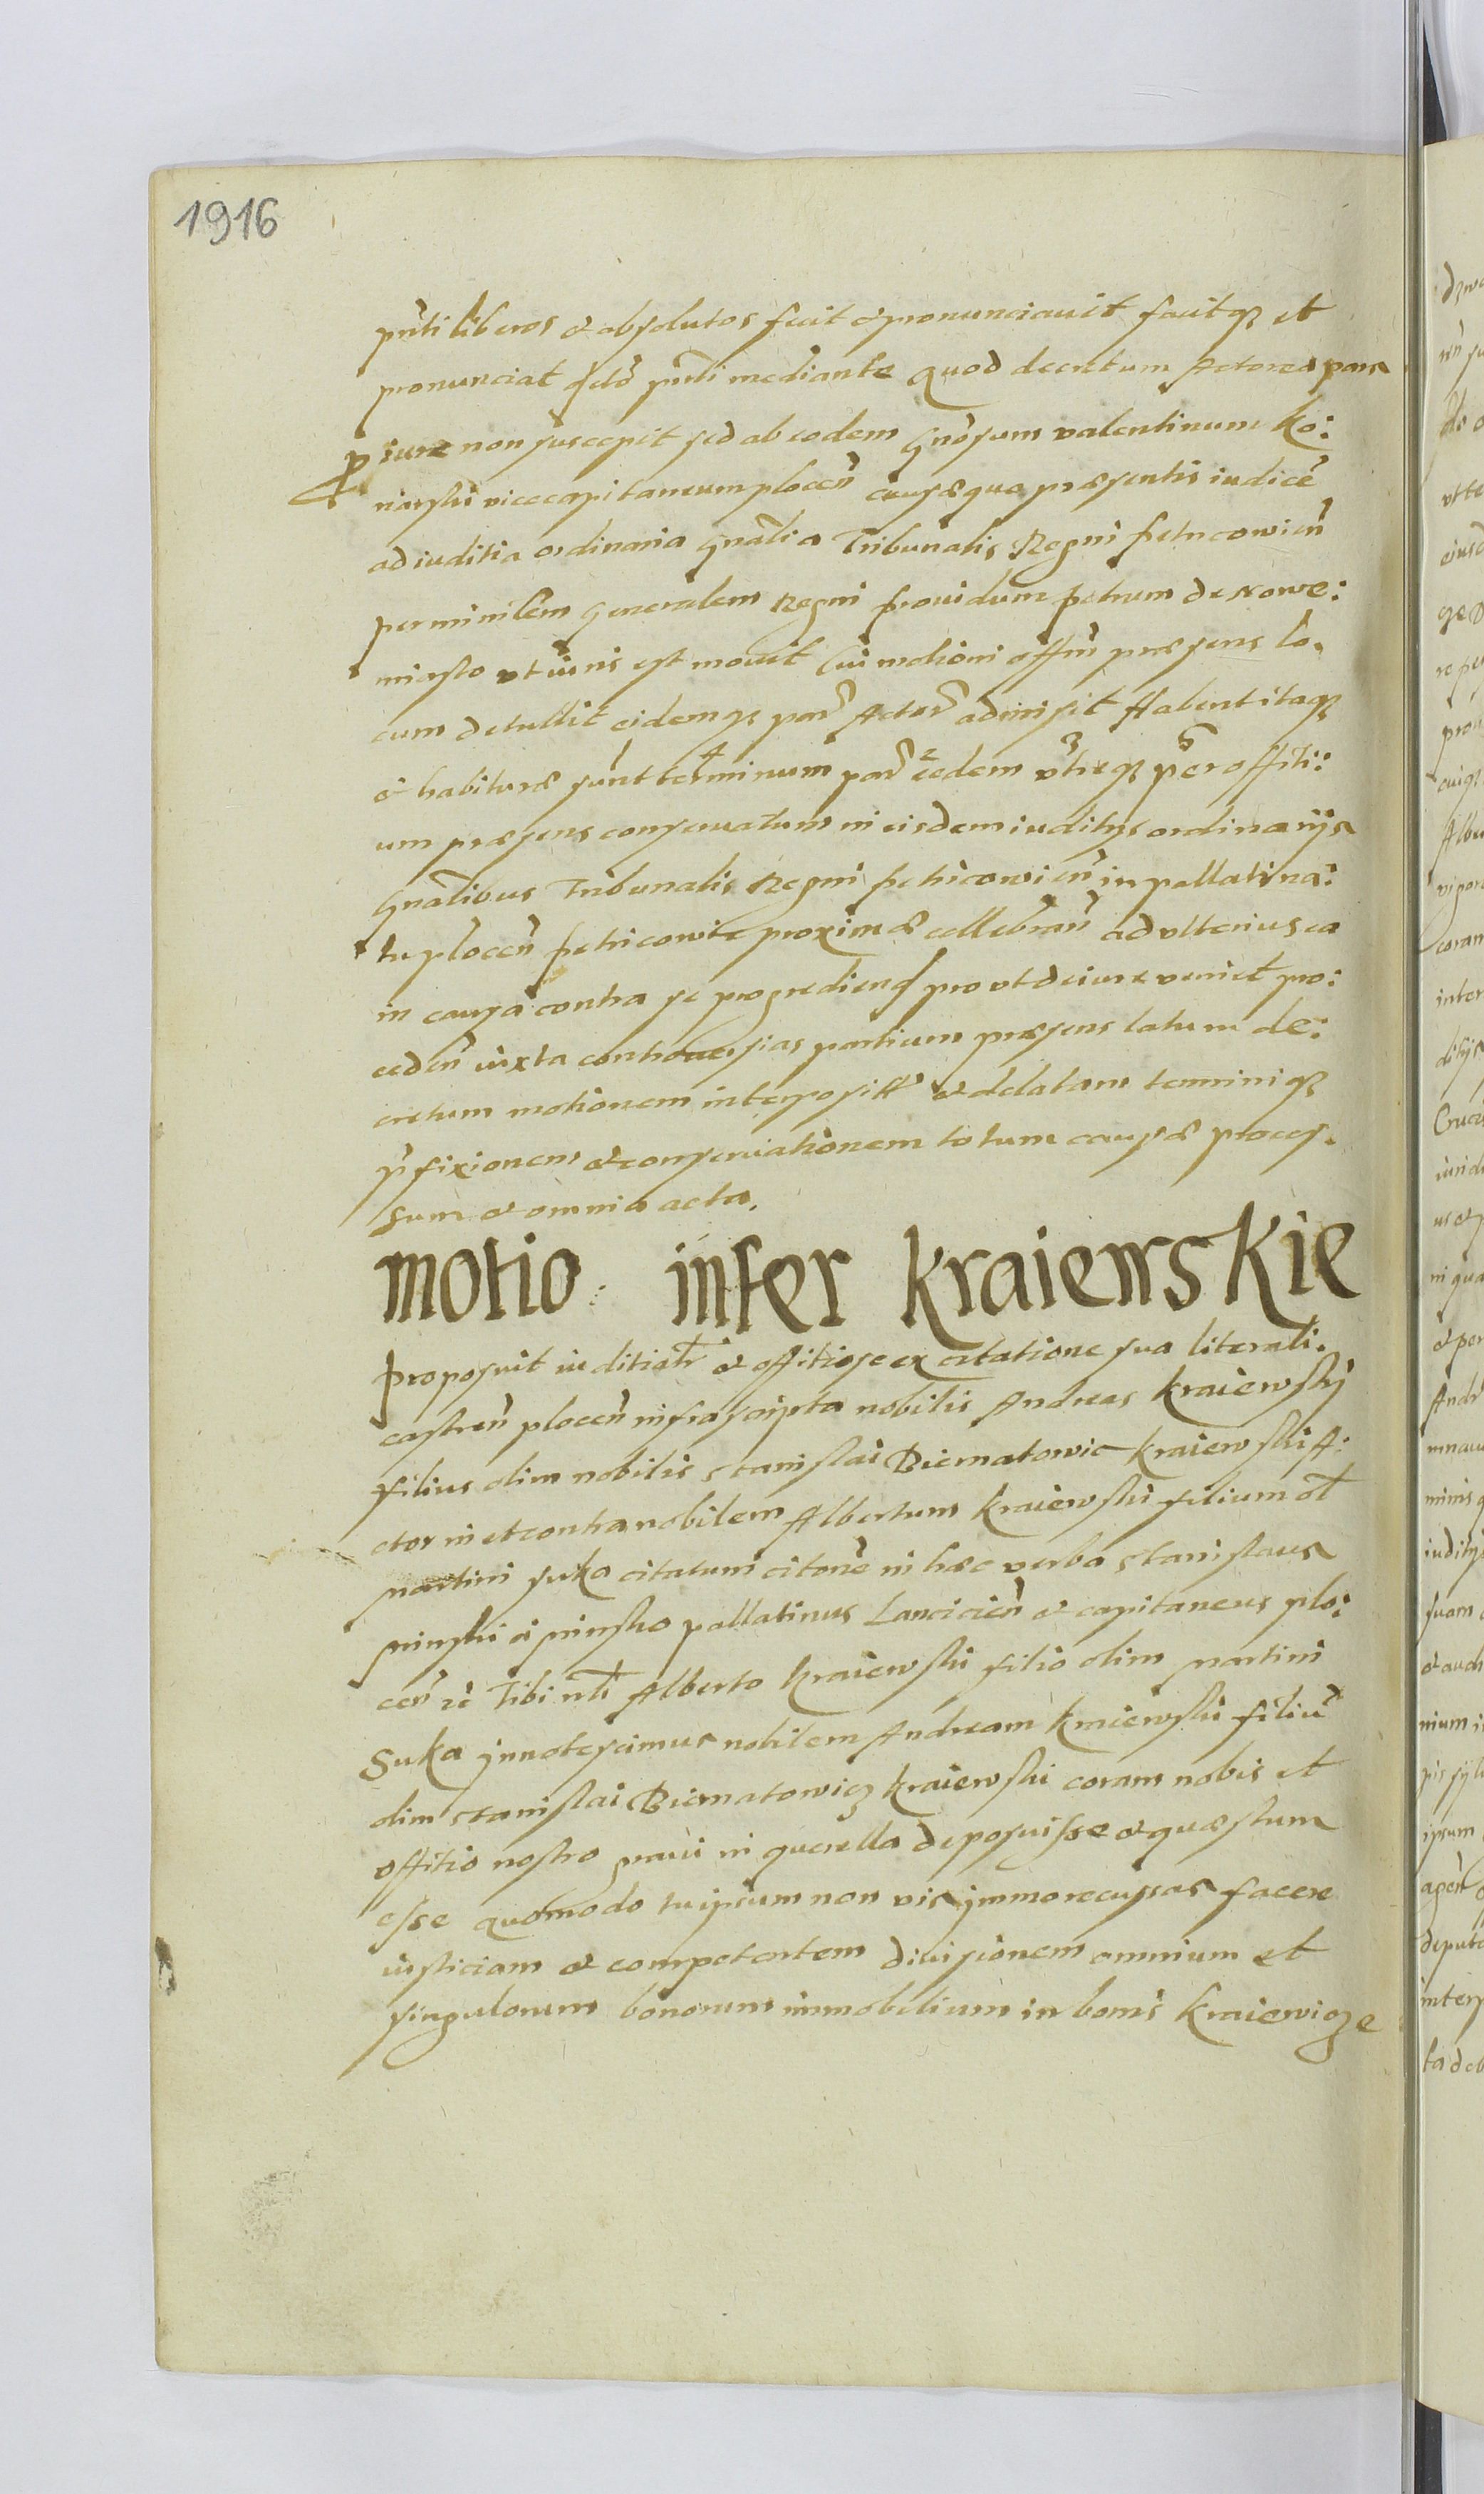 1916
pn̄ti liberos & absolutos fecit & pronunciavit facitq3 et
pronunciat pn̄ti mediante quod decretum Actorea pars
ꝓ iure non suscepit sed ab eodem Gn̄osum valentinum Ko:
niarski vicecapitaneum plocen̄ causæque præsentis iudicē
ad iuditia ordinaria Gnālia Tribunalis Regni petricowien̄
per minilēm Generalem Regni providum petrum de Nowe:
miasto ut iuris est movit Cui motioni offm̄ præsens lo,
cum detullit eidemq3 par̄ Actor̄ admisit Habent itaq3
& habituræ sunt terminum par̄ eædem utreq3 per offiti:
um præsens conservatum in eisdem iuditys ordinarys
Gnālibus Tribunalis Regni petricowien̄ in pallatina:
tu plocen̄ petricowiæ proximæ cellebran̄ ad ulterius ea
in causa contra se progrediend pro ut de iure veniet pro:
ceden̄ iuxta controversias partium præsens latum de:
cretum motionem interposit & delatam terminiq3
p̄fixionem & conservationem totum causæ proces,
sum & omnia acta.
motio inter Kraiewskie
Proposuit iuditialr̄ & offitiose ex citatione sua literali,
castren̄ plocen̄ infrascripta nobilis Andreas Kraiewsky
filius olim nobilis Stanislai Biernatowic Kraiewski A:
ctor in et contra nobilem Albertum Kraiewski filium ol̄
martini suka citatum citonē in hæc verba Stanislaus
minski a minsko pallatinus Lancicien̄ & capitaneus plo:
cen̄ Tibi nl̄i Alberto Kraiewski filio olim martini
Suka Innotescimus nobilem Andream Kraiewski filiū
olim Stanislai Biernatowicz Kraiewski coram nobis et
offitio nostro gravi in querella deposuisse & quæstum
esse quomodo tu ipsum non vis immo recusas facere
iusticiam & competentem divisionem omnium et
singulorum bonorum immobilium in bonis Kraiewicze